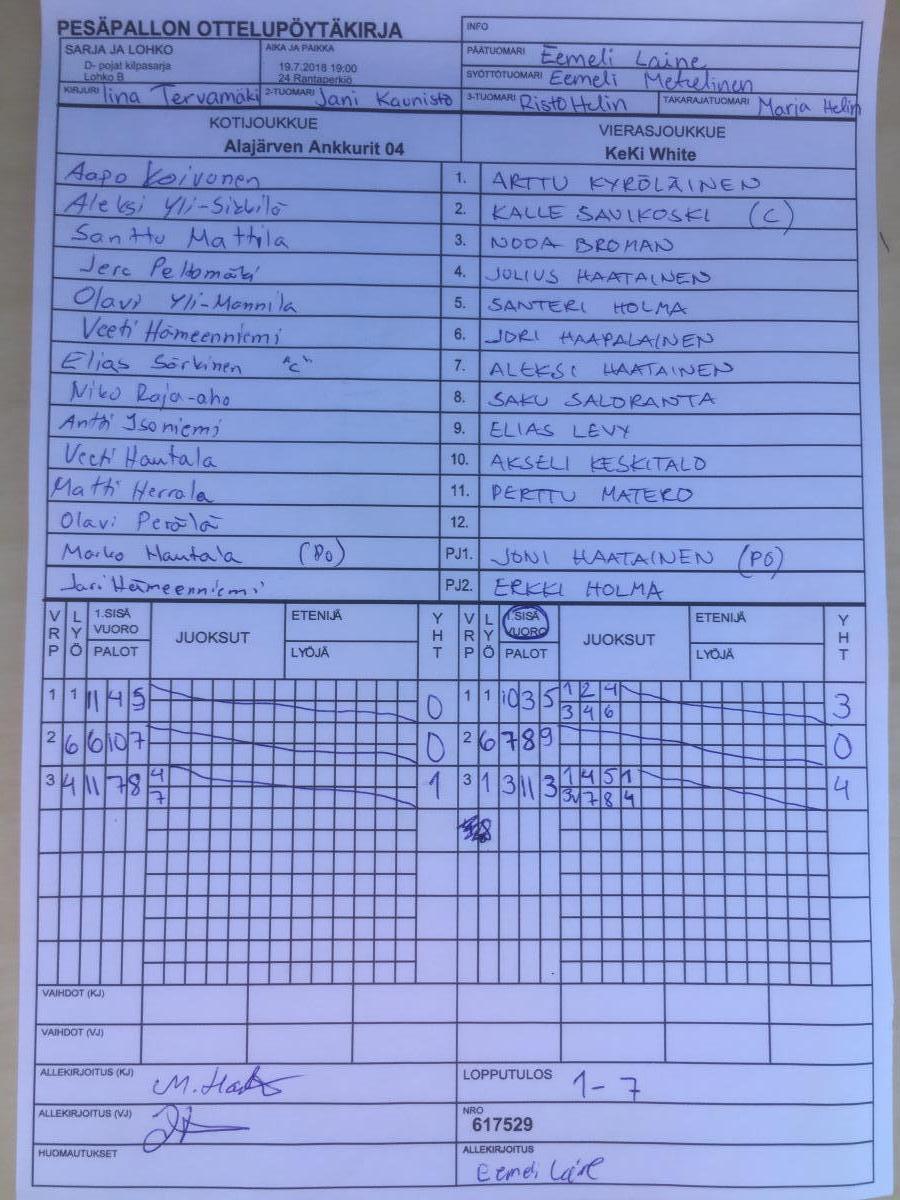 PESÄPALLON OTTELUPÖYTÄKIRJA
INFO
SARJA JA LOHKO
D- pojat kilpasarja
Lohko B
AIKA JA PAIKKA
19.7.2018 19:00
24 Rantaperkiö
PÄÄTUOMARI Eemeli Laine
SYÖTTÖTUOMARI Eemeli Metelinen
KIRJURI Iina Tervamäki 2-TUOMARI Jani Kaunisto 3-TUOMARI Risto Helin TAKARAJATUOMARI Marja Helin
KOTIJOUKKUE VIERASJOUKKUE
Alajärven Ankkurit 04 KeKi White
Aapo Koivonen 1. ARTTU KYRÖLÄINEN
Aleksi Yli-Sikkilä 2. KALLE SAVIKOSKI (C)
Santtu Mattila 3. NOOA BROMAN
Jere Peltomäki 4. JULIUS HAATAINEN
Olavi Yli-Mannila 5. SANTERI HOLMA
Veeti Hämeenniemi 6. JORI HAAPALAINEN
Elias Särkinen "C" 7. ALEKSI HAATAINEN
Niko Raja-aho 8. SAKU SALORANTA
Antti Isoniemi 9. ELIAS LEVY
Veeti Hautala 10. AKSELI KESKITALO
Matti Herrala 11. PERTTU MATERO
Olavi Perälä 12.
Marko Hautala (PO) PJ1. JONI HAATAINEN (PÖ)
Jari Hämeenniemi PJ2. ERKKI HOLMA
VRP LYÖ 1.SISÄ VUORO PALOT JUOKSUT ETENIJÄ LYÖJÄ YHT VRP LYÖ 1.SISÄ VUORO PALOT JUOKSUT ETENIJÄ LYÖJÄ YHT
1 1 11 4 5 0 1 1 10 3 5 1 2 4 3
3 4 6
2 6 6 10 7 0 2 6 7 8 9 0
3 4 11 7 8 4 1 3 1 3 11 3 1 4 5 1 4
7 3v 7 8 4
VAIHDOT (KJ)
VAIHDOT (VJ)
ALLEKIRJOITUS (KJ)
LOPPUTULOS 1-7
ALLEKIRJOITUS (VJ)
NRO
617529
HUOMAUTUKSET
ALLEKIRJOITUS
Eemeli Laine